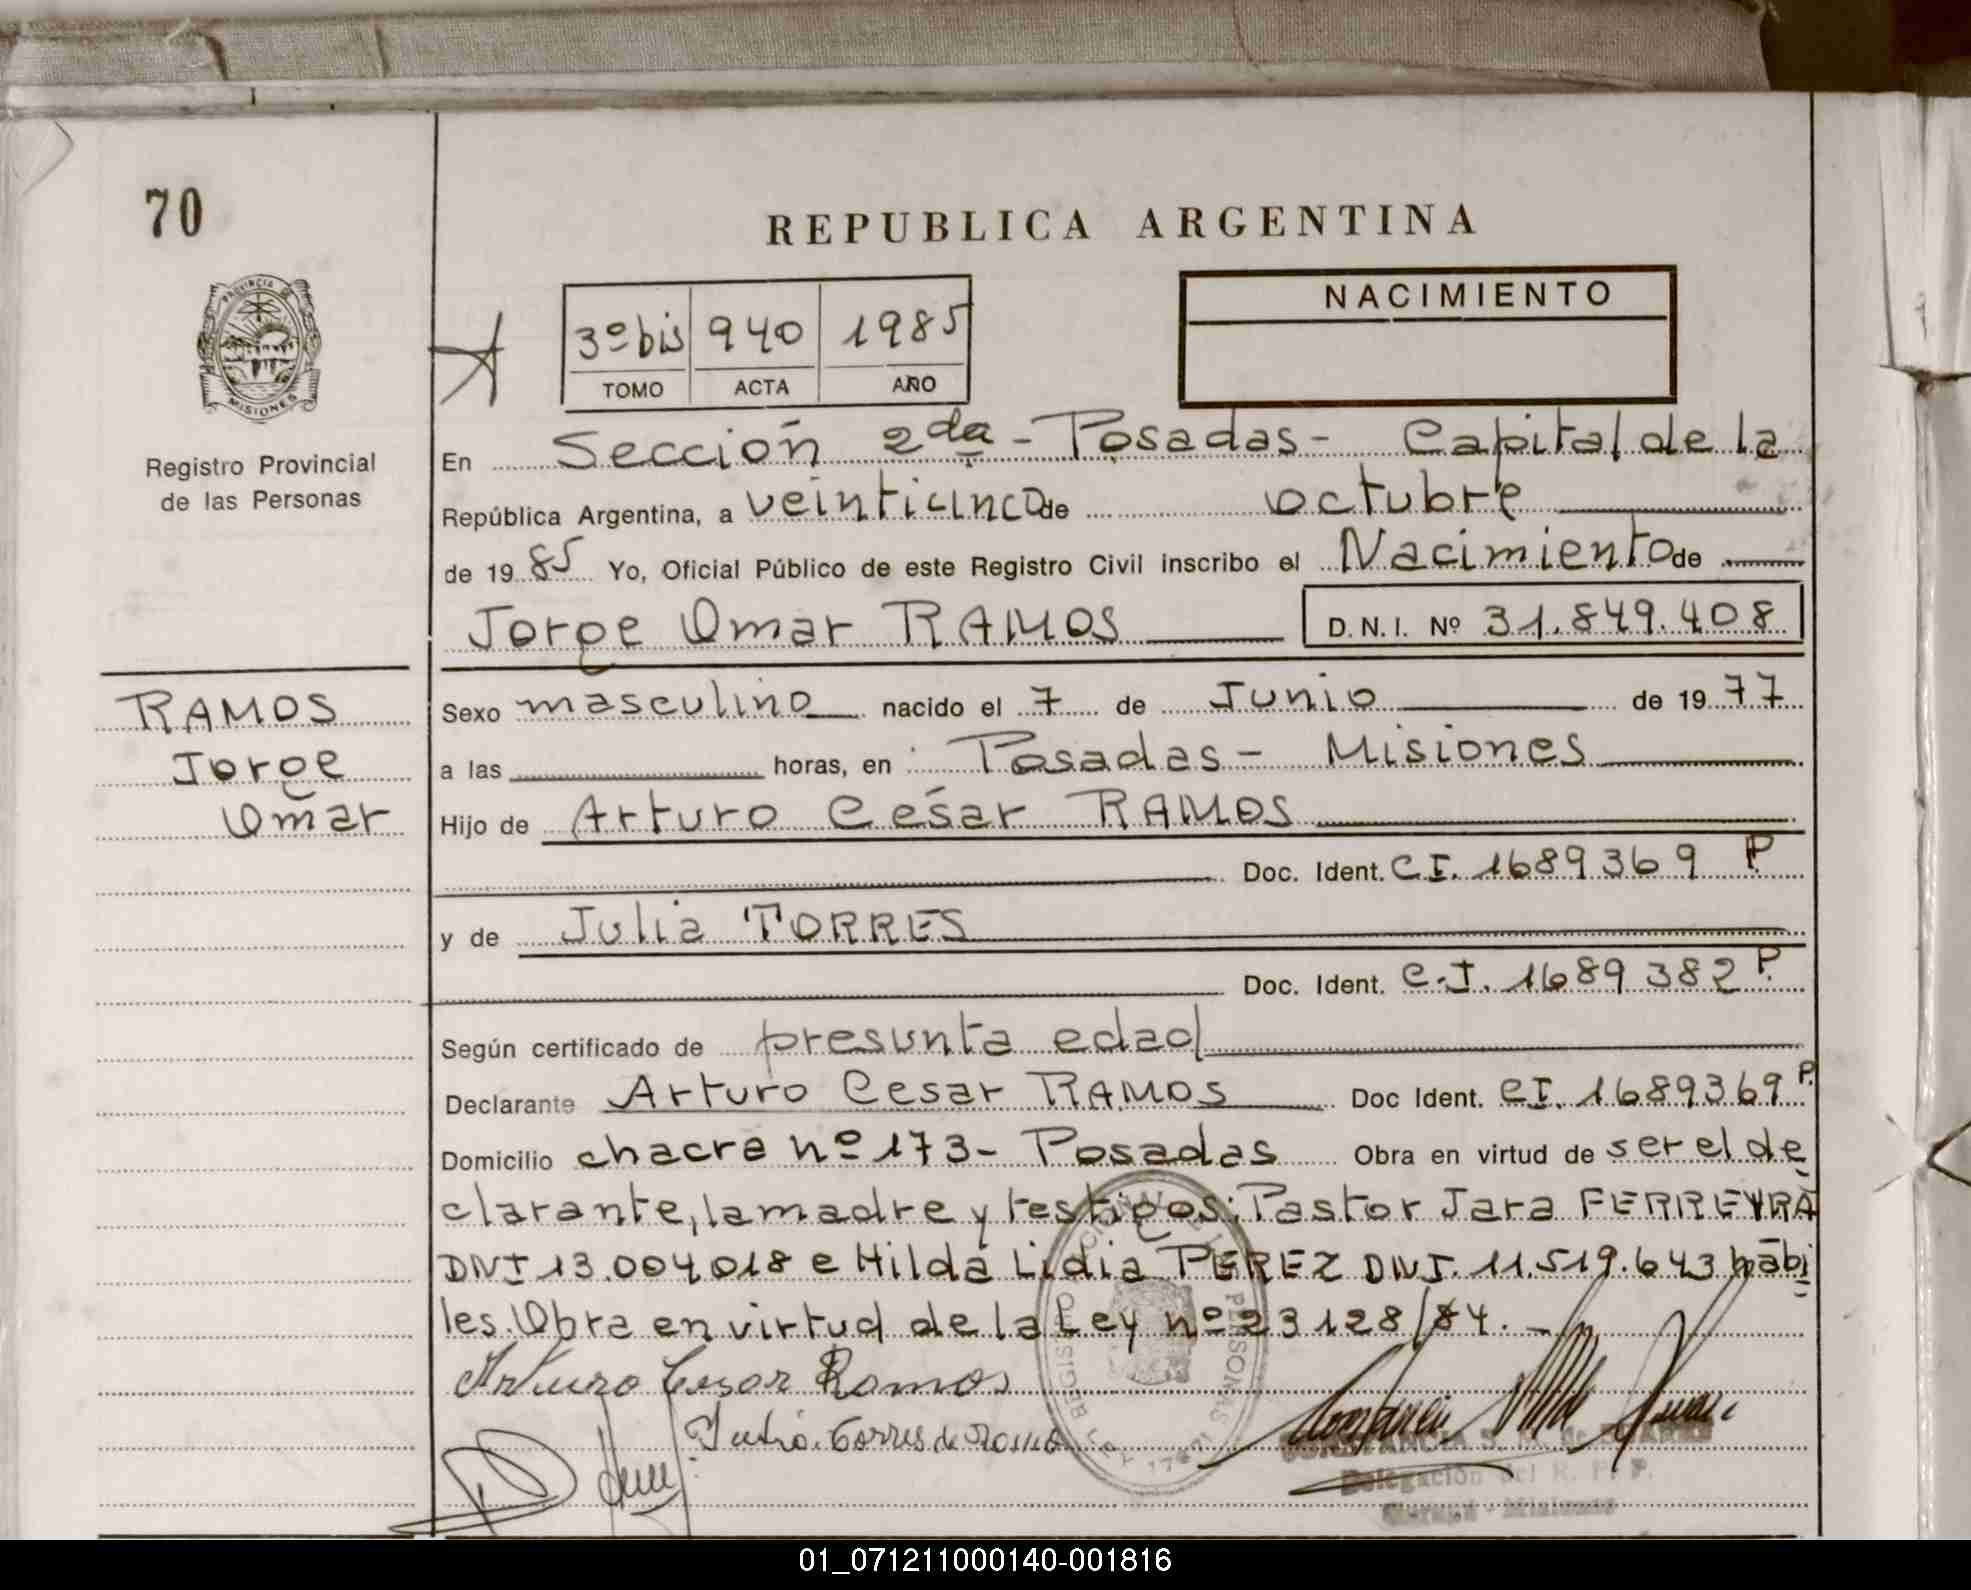 70
REPUBLICA ARGENTINA
PROVINCIA DE MISIONES
Registro Provincial
de las Personas
3º bis 940 1985
TOMO ACTA AÑO
NACIMIENTO
En Sección 2da - Posadas - Capital de la
República Argentina, a veinticinco de octubre
de 1985 Yo, Oficial Público de este Registro Civil inscribo el Nacimiento de
Jorge Omar RAMOS D.N.I. Nº 31.849.408
RAMOS
Jorge
Omar
Sexo masculino nacido el 7 de Junio de 1977
a las horas, en Posadas - Misiones
Hijo de Arturo Cesar RAMOS
Doc. Ident. C.I. 1689369 P.
y de Julia TORRES
Doc. Ident. C.I. 1689382 P.
Según certificado de presunta edad
Declarante Arturo Cesar RAMOS Doc Ident. C.I. 1689369 P.
Domicilio chacra nº 173 - Posadas Obra en virtud de ser el de
clarante, la madre y testigos: Pastor Jara FERREYRA
DNI 13.004018 e Hilda Lidia PEREZ DNI. 11.519.643 hábi
les. Obra en virtud de la Ley nº 23128/84. -
Arturo Cesar Ramos
Julia Torres de Ramos
REGISTRO PERSONAS
Delegación del R. P. P.
Misiones
01_071211000140-001816